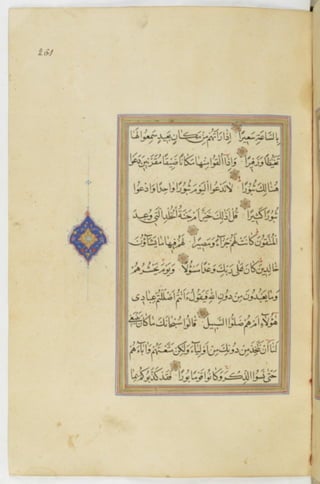 261
بِالسَّاعَةِ سَعِيرًا إِذَا رَأَتْهُمْ مِنْ مَكَانٍ بَعِيدٍ سَمِعُوا لَهَا
تَغَيُّظًا وَزَفِيرًا وَإِذَا أُلْقُوا مِنْهَا مَكَانًا ضَيِّقًا مُقَرَّنِينَ دَعَوْا
هُنَالِكَ ثُبُورًا لَا تَدْعُوا الْيَوْمَ ثُبُورًا وَاحِدًا وَادْعُوا
ثُبُورًا كَثِيرًا قُلْ أَذَٰلِكَ خَيْرٌ أَمْ جَنَّةُ الْخُلْدِ الَّتِي وُعِدَ
الْمُتَّقُونَ كَانَتْ لَهُمْ جَزَاءً وَمَصِيرًا لَهُمْ فِيهَا مَا يَشَاؤُنَ
خَالِدِينَ كَانَ عَلَى رَبِّكَ وَعْدًا مَسْئُولًا وَيَوْمَ يَحْشُرُهُمْ
وَمَا يَعْبُدُونَ مِنْ دُونِ اللَّهِ فَيَقُولُ ءَأَنْتُمْ أَضْلَلْتُمْ عِبَادِي
هَٰؤُلَاءِ أَمْ هُمْ ضَلُّوا السَّبِيلَ قَالُوا سُبْحَانَكَ مَا كَانَ يَنْبَغِي
لَنَا أَنْ نَتَّخِذَ مِنْ دُونِكَ مِنْ أَوْلِيَاءَ وَلَٰكِنْ مَتَّعْتَهُمْ وَآبَاءَهُمْ
حَتَّى نَسُوا الذِّكْرَ وَكَانُوا قَوْمًا بُورًا فَقَدْ كَذَّبُوكُمْ بِمَا